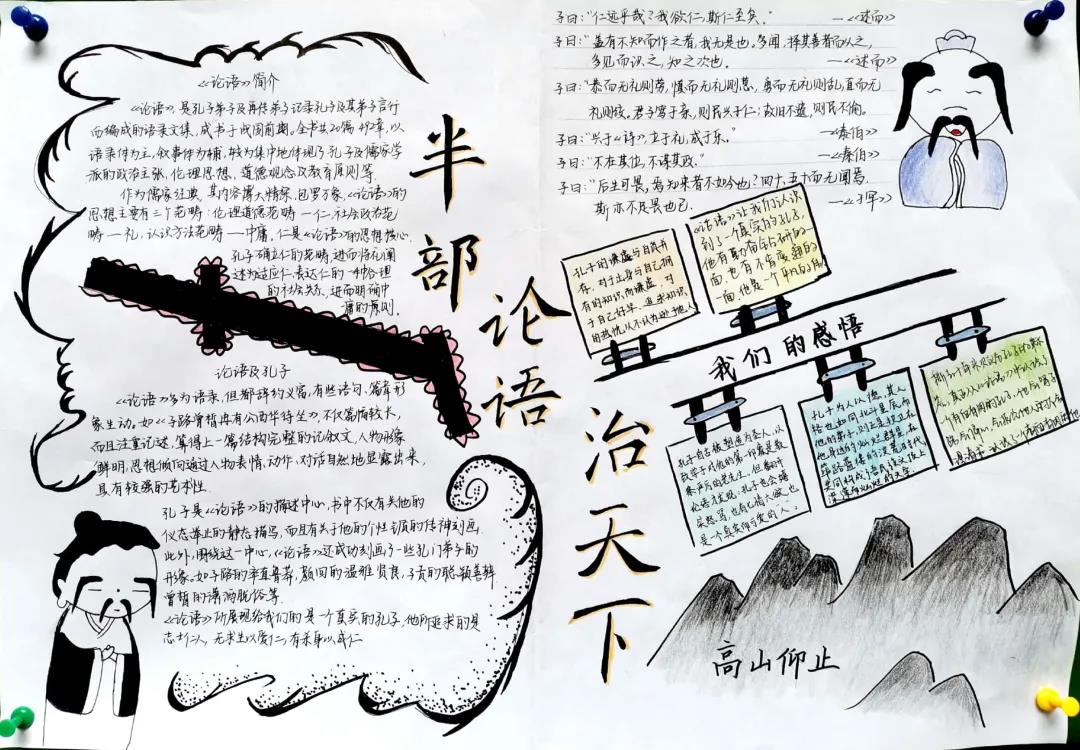 《论语》简介
《论语》，是孔子弟子及再传弟子记录孔子及其弟子言行
而编成的语录文集，成书于战国前期。全书共20篇492章，以
语录体为主，叙事体为辅，较为集中地体现了孔子及儒家学
派的政治主张、伦理思想、道德观念及教育原则等.
作为儒家经典，其内容博大精深，包罗万象，《论语》的
思想主要有三个范畴：伦理道德范畴一仁，社会政治范
畴一礼，认识方法范畴一中庸。仁是《论语》的思想核心.
孔子确立仁的范畴，进而将礼阐
述为适应仁、表达仁的一种合理
的社会关系，进而明确中
庸的原则.
论语及孔子
《论语》多为语录，但都辞约义富，有些语句、篇章形
象生动。如《子路曾皙冉有公西华侍坐》，不仅篇幅较长，
而且注重记述，算得上一篇结构完整的记叙文，人物形象
鲜明，思想倾向通过人物表情、动作、对话自然地显露出来，
具有较强的艺术性.
孔子是《论语》的描述中心，书中不仅有关他的
仪态举止的静态描写，而且有关于他的个性气质的传神刻画.
此外，围绕这一中心，《论语》还成功刻画了一些孔门弟子的
形象。如子路的率直鲁莽，颜回的温雅贤良，子贡的聪颖善辩
曾皙的潇洒脱俗等.
《论语》所展现给我们的是一个真实的孔子，他所追求的是
志士仁人，无求生以害仁，有杀身以成仁
半部
论语
治天下
子曰：“仁远乎哉？我欲仁，斯仁至矣.”
—《述而》
子曰：“盖有不知而作之者，我无是也。多闻，择其善者而从之，
多见而识之，知之次也.
—《述而》
子曰：“恭而无礼则劳，慎而无礼则葸，勇而无礼则乱，直而无
礼则绞。君子笃于亲，则民兴于仁；故旧不遗，则民不偷。
—《泰伯》
子曰：“兴于《诗》，立于礼，成于乐.”
—《泰伯》
子曰：“不在其位，不谋其政.”
子曰：“后生可畏，焉知来者不如今也？四十、五十而无闻焉，
斯亦不足畏也已.
—《子罕》
孔子的谦虚与自负并
存，对于出身与自己拥
有的知识而谦虚，对
于自己好学、追求知识
的热忱从不认为逊于他人
《论语》让我们认识
到了一个真实的孔子，
他有勤奋钻研的一
面，也有不肯
面，他是一个
我们的感悟
孔子自古被塑造为圣人，以
致学子对他的第一印象是敬
肃严厉的老先生，但翻开
论语才发现，孔子也会嬉
笑怒骂，也有七情六欲，也
是一个真实
孔子为人以德，其人
格也如同北斗星辰，而
他的弟子，则
他身边的
高山仰止